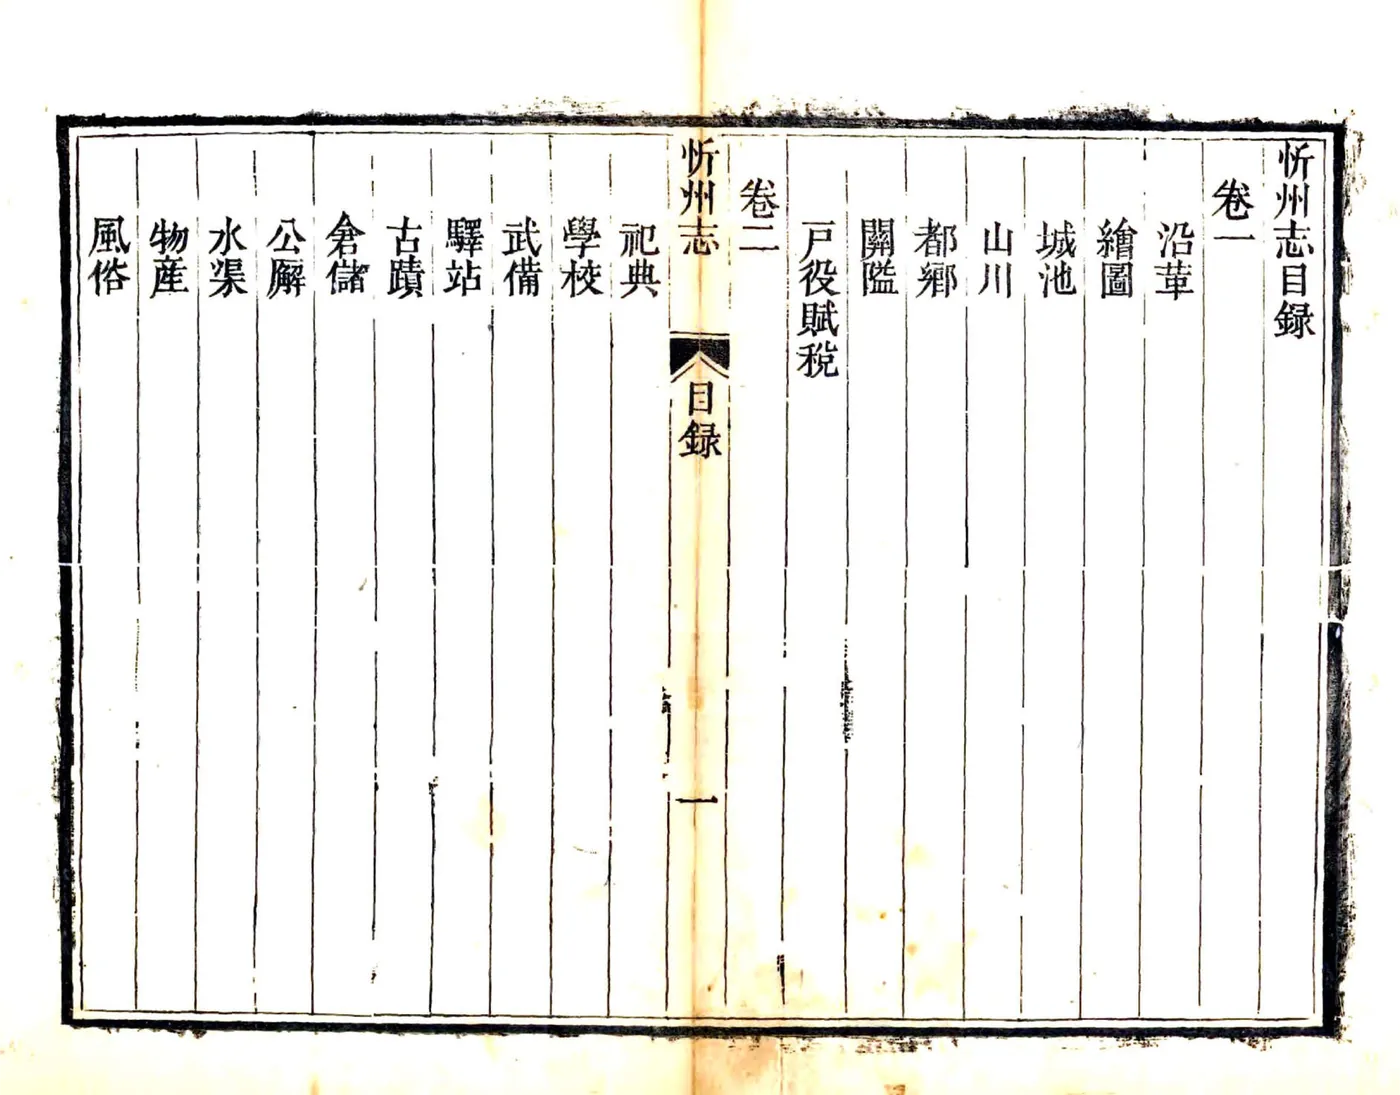 忻州志目録
卷一
沿革
繪圖
城池
山川
都鄉
關隘
戸役賦稅
卷二
忻州志
目録
一
祀典
學校
武備
驛站
古蹟
倉儲
公廨
水渠
物産
風俗